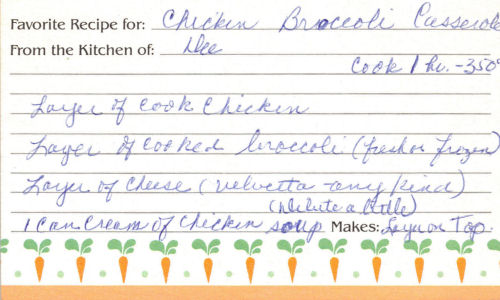 Favorite Recipe for: Chicken Broccoli Casserole
From the Kitchen of: Dee
Cook 1 hr. - 350°
Layer of cook Chicken
Layer of cooked broccoli (fresh or frozen)
Layer of Cheese (velvetta - any kind)
(Delute a little)
1 Can Cream of Chicken soup Makes: Layer on Top.